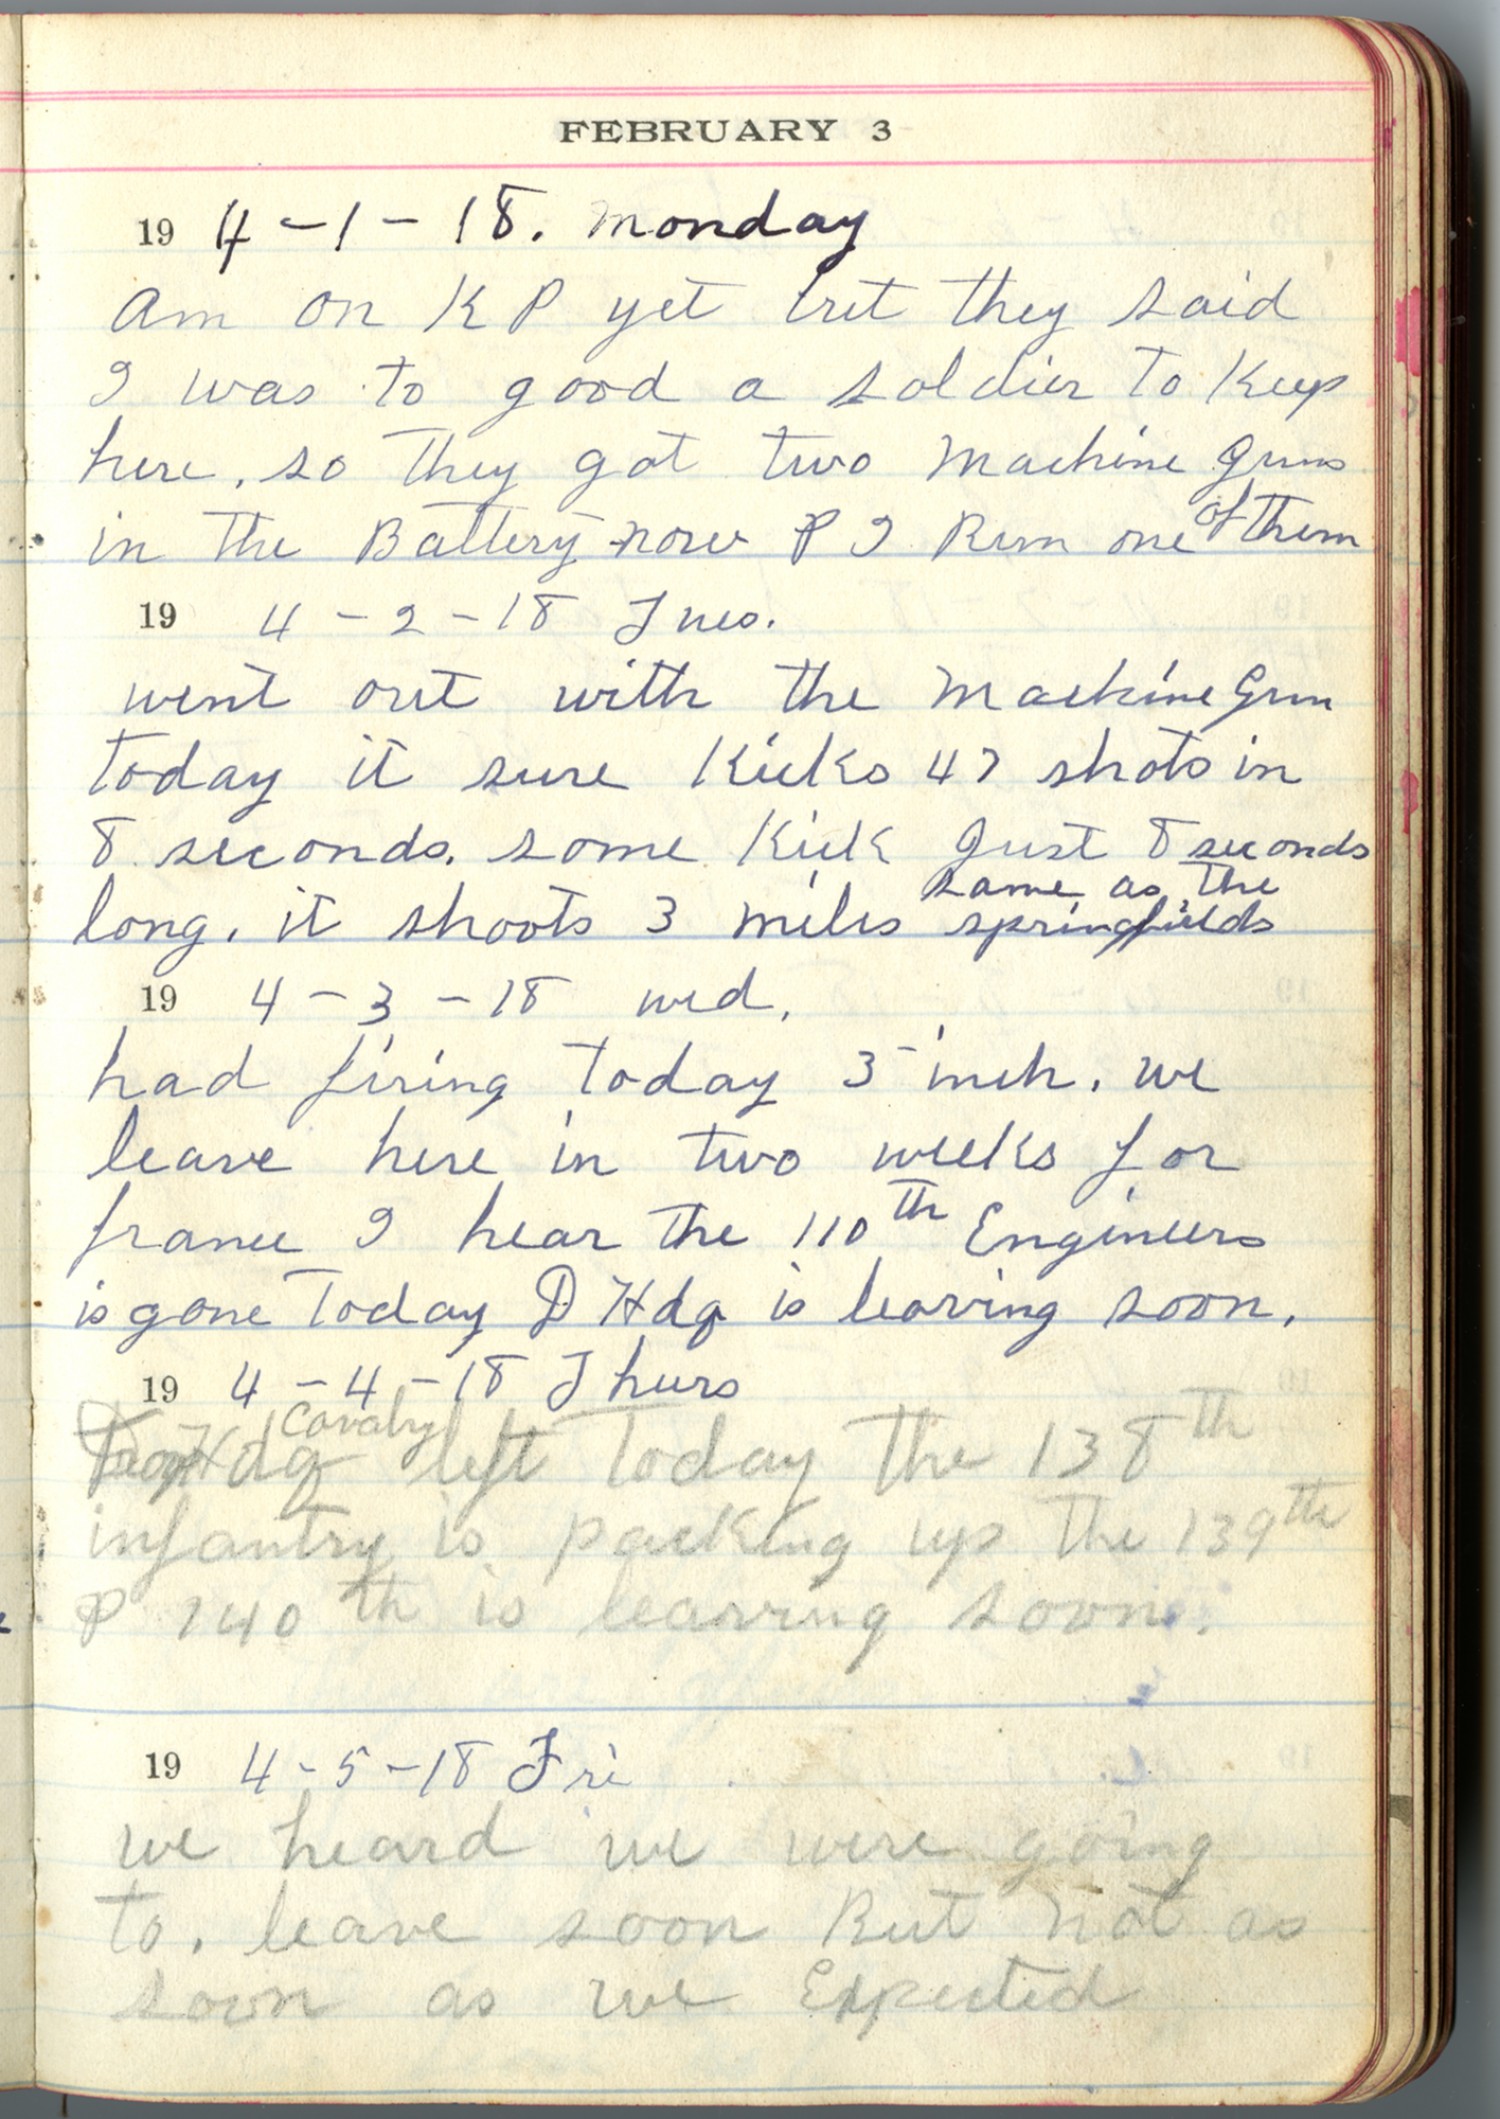 FEBRUARY 3
19 4-1-18. Monday
Am on K P yet but they said
I was to good a soldier to Keep
here, so they got two Machine Guns
in the Battery now & I Run one of them
19 4-2-18 Tues.
went out with the Machine Gun
today it sure Kicks 47 shots in
8 seconds. some Kick Just 8 seconds
long. it shoots 3 miles same as the
springfields
19 4-3-18 wed.
had firing today 3-inch. we
leave here in two weeks for
france I hear the 110th Engineers
is gone Today D Hdq is leaving soon.
19 4-4-18 Thurs
Hdq Cavalry left Today the 138th
infantry is packing up the 139th
& 140th is learving soon.
19 4-5-18 Fri
we heard we were going
to. leave soon But not as
soon as we Expected